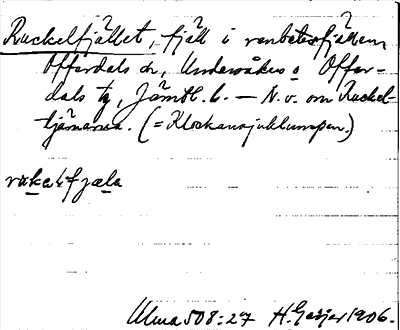 Ruckelfjället, fjäll i renbetesfjällen
Offerdals sn, Undersåkers o Offer-
dals tg, Jämtl. l. — N.v. om Ruckel-
tjärnarna. (= Klockansjuklumpen.)
Ulma 508:27 H. Geijer 1906.